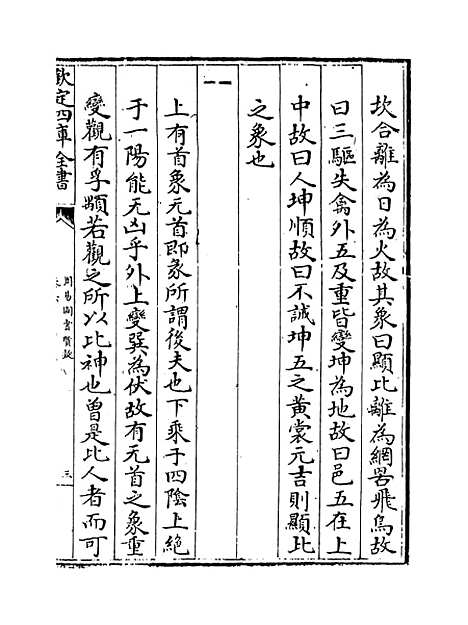 坎合離為日為火故其象曰顯比離為網罟飛鳥故
曰三驅失禽外五及重皆變坤為地故曰邑五在上
中故曰人坤順故曰不誡坤五之黃裳元吉則顯比
之象也
上有首象元首即彖所謂後夫也下乘于四陰上絶
于一陽能无凶乎外上變巽為伏故有无首之象重
變觀有孚顒若觀之所以比神也曽是比人者而可
欽定四庫全書
周易圖書質疑
三